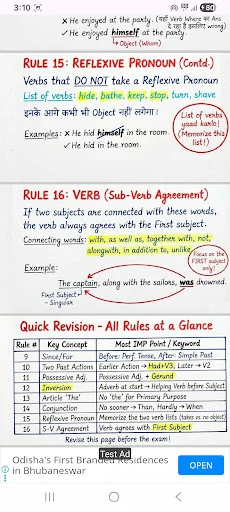 3:10
80
× He enjoyed at the party. (यहाँ Verb Where का Ans
दे रहा है इसलिए wrong)
✓ He enjoyed himself at the party.
Object (Whom)
RULE 15: REFLEXIVE PRONOUN (Contd.)
Verbs that DO NOT take a Reflexive Pronoun
List of verbs: hide, bathe, keep, stop, turn, shave
इनके आगे कभी भी Object नहीं लगेगा।
List of verbs
yaad karlo!
(Memorize this
list!)
Examples: × He hid himself in the room.
✓ He hid in the room.
RULE 16: VERB (Sub-Verb Agreement)
If two subjects are connected with these words,
the verb always agrees with the First subject.
Connecting words: with, as well as, together with, not,
alongwith, in addition to, unlike
Focus on the
FIRST subject
only!
Example:
The captain, along with the sailors, was drowned.
First Subject
- Singular
Quick Revision - All Rules at a Glance
Rule # Key Concept Most IMP Point / Keyword
9 Since/For Before: Perf. Tense, After: Simple Past
10 Two Past Actions Earlier Action → Had+V3, Later → V2
11 Possessive Adj. Possessive Adj. + Gerund
12 Inversion Adverb at start → Helping Verb before Subject
13 Article 'The' No 'the' for Primary Purpose
14 Conjunction No sooner → Than, Hardly → When
15 Reflexive Pronoun Memorize the two verb lists (takes vs. no object)
16 S-V Agreement Verb agrees with First Subject
Revise this page before the exam!
Test Ad
Odisha's First Branded Residences
in Bhubaneswar
OPEN